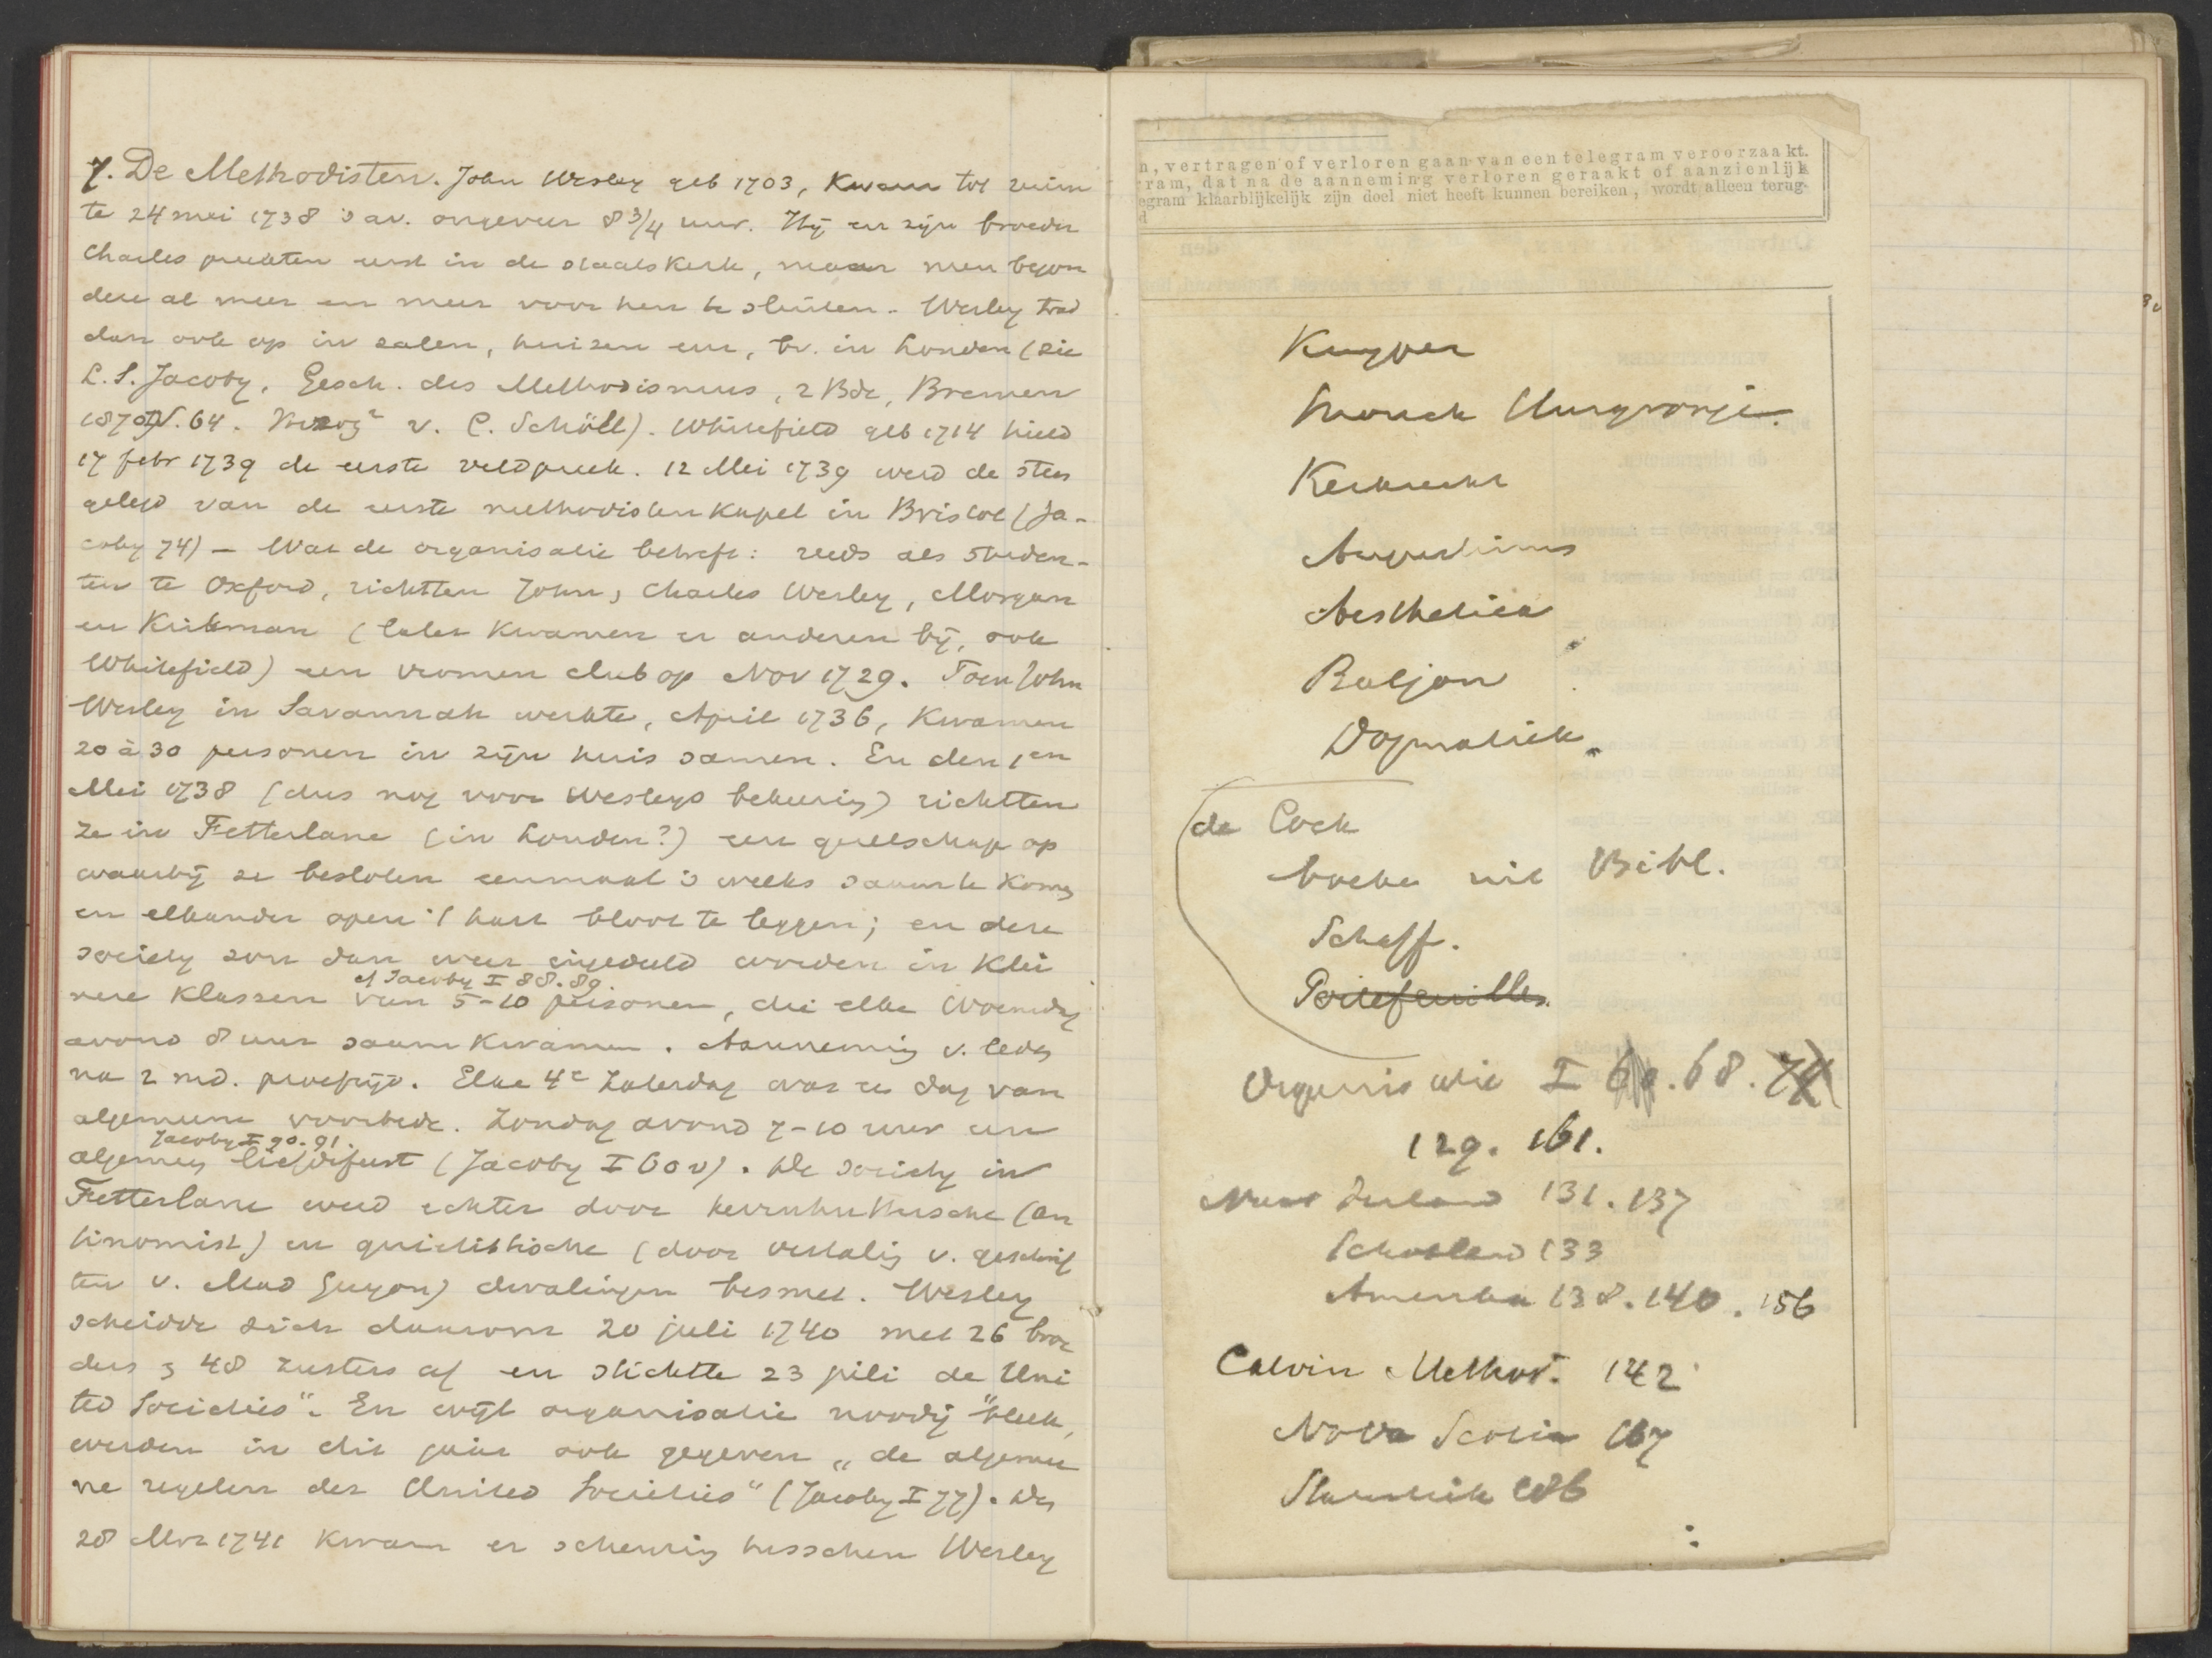 7. De Methodisten. John Wesley geb 1703, kwam tot ruim
te 24 mei 1738 's av. ongeveer 8 3/4 uur. Hij en zijn broeder
Charles preekten eerst in de staatskerk, maar men begon
deze al meer en meer voor hen te sluiten. Wesley trad
dan ook op in zalen, huizen enz, bv. in Londen (zie
L. S. Jacoby, Gesch. des Methodismus, 2 Bde, Bremen
1870 64. Herzog² v. C. Schöll). Whitefield geb 1714 hield
17 febr 1739 de eerste veldpreek. 12 Mei 1739 werd de steen
gelegd van de eerste methodisten kapel in Bristol (Ja-
coby 74) – Wat de organisatie betreft: reeds als studen-
ten te Oxford, richtten John, Charles Wesley, Morgan
en Kirkman (later kwamen er anderen bij, ook
Whitefield) een vromen club op Nov 1729. Toen John
Wesley in Savannah werkte, April 1736, kwamen
20 à 30 personen in zijn huis samen. En den 1en
Mei 1738 (dus nog voor Wesleys bekeering) richtten
ze in Fetterlane (in Londen?) een gezelschap op
waarbij ze besloten eenmaal 's weeks saam te komen
en elkander open 't hart bloot te leggen; en deze
society zou dan weer ingedeeld worden in klei
cf Jacoby I 88. 89.
nere klassen van 5-10 personen, die elke Woensdag
avond 8 uur saam kwamen. Aanneming v. leden
na 2 md. proeftijd. Elke 4e Zaterdag was een dag van
algemeene voorbede. Zondag avond 7-10 uur een
Jacoby I 90. 91.
algemeen liefdefeest (Jacoby I 60 v). De society in
Fetterlane werd echter door herrnhuttersche (an
tinomist.) en quietistische (door vertaling v. geschrif
ten v. Mad Guyon) dwalingen besmet. Wesley
scheidde zich daarom 20 juli 1740 met 26 broe
ders & 48 zusters af en stichtte 23 juli de „Uni
ted Societies“. En wijl organisatie noodig bleek,
werden in dit jaar ook gegeven „de algemee
ne regelen der United Societies“ (Jacoby I 77). Den
28 Mrz 1741 kwam er scheuring tusschen Wesley
n, vertragen of verloren gaan van een telegram veroorzaakt.
ram, dat na de aanneming verloren geraakt of aanzienlijk
egram klaarblijkelijk zijn doel niet heeft kunnen bereiken, wordt alleen terug-
d
Kuyper
Snouck Hurgronje
Kerkrecht
Augustinus
Aesthetica
Baljon
Dogmatiek
de Cock
boeken uit Bibl.
Schaff.
Portefeuilles
Organisatie I 68.
129. 161.
Naar Ierland 131. 137
Schotland 133
Amerika 138. 140. 156
Calvin Method. 142
Nova Scotia 167
Statistiek 186